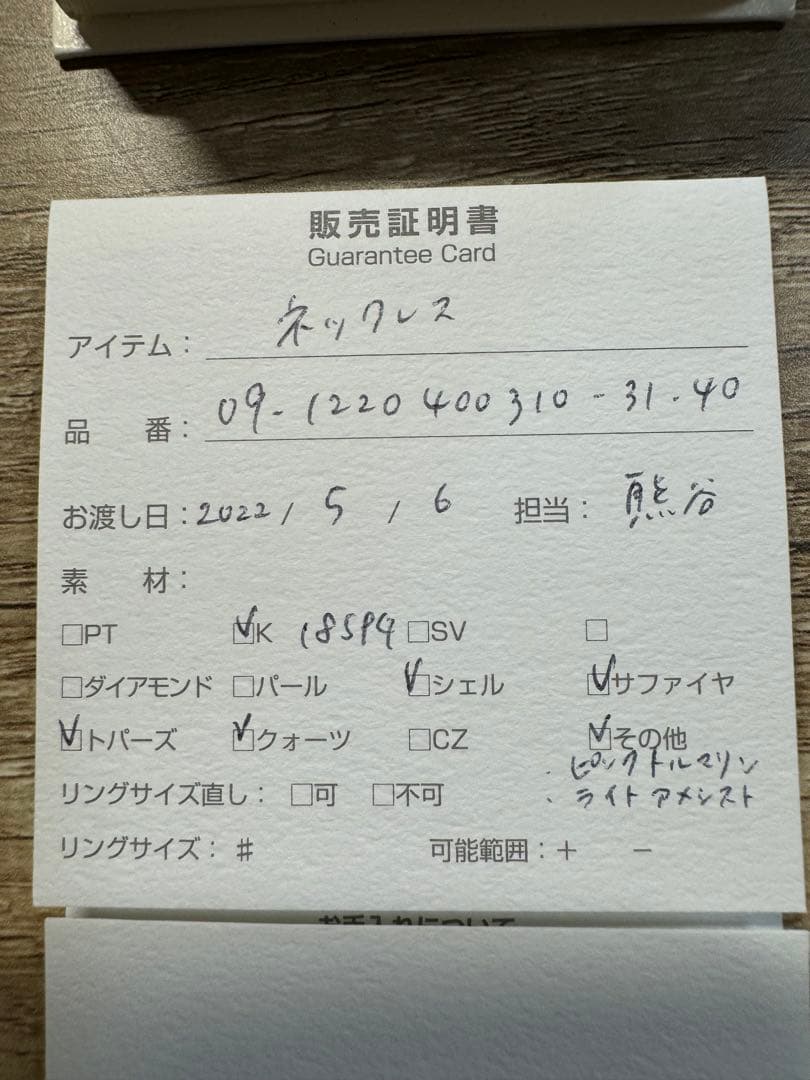 販売証明書
Guarantee Card
アイテム： ネックレス
品　番： 09-1220400310-31-40
お渡し日：2022 / 5 / 6　担当： 熊谷
素　材：
□PT　☑K 18 YG □SV　□
□ダイアモンド □パール　☑シェル　☑サファイヤ
☑トパーズ　☑クォーツ　□CZ　☑その他
・ピンクトルマリン
リングサイズ直し： □可　□不可　・ライトアメシスト
リングサイズ： ♯　可能範囲：＋　−
お手入れについて